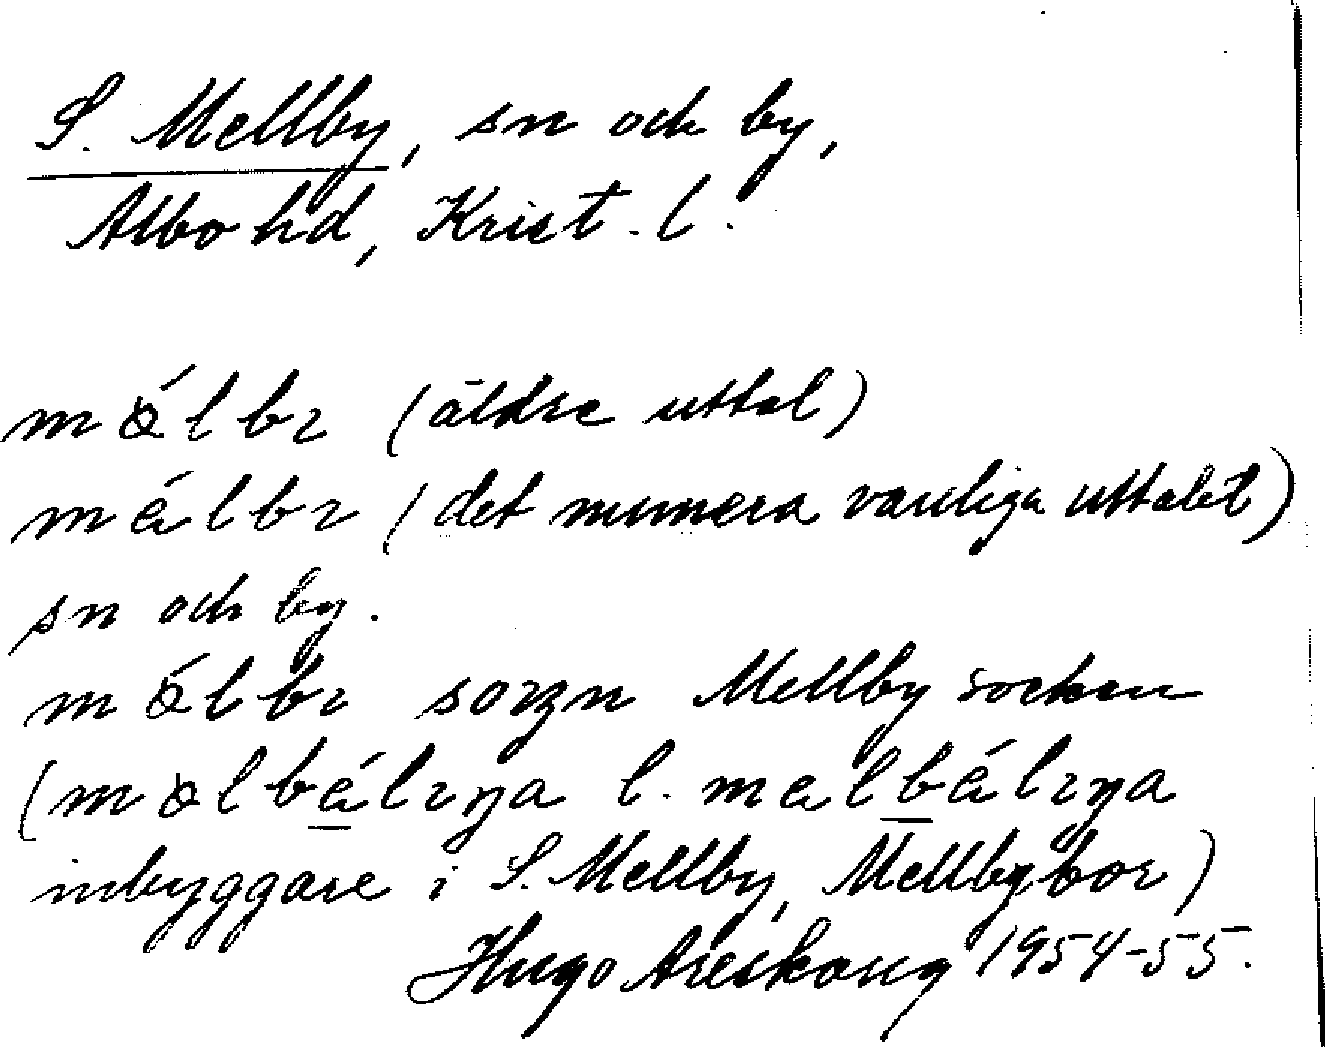 S. Mellby, sn och by,
Albo hd, Krist. l.
mǿlbɪ (äldre uttal)
mǽlbɪ (det numera vanliga uttalet)
sn och by.
mǿlbɪ sorgn Mellby socken
(mølbǽlɪŋa l. mælbǽlɪŋa
inbyggare i S. Mellby, Mellbybor)
Hugo Areskoug 1954-55.